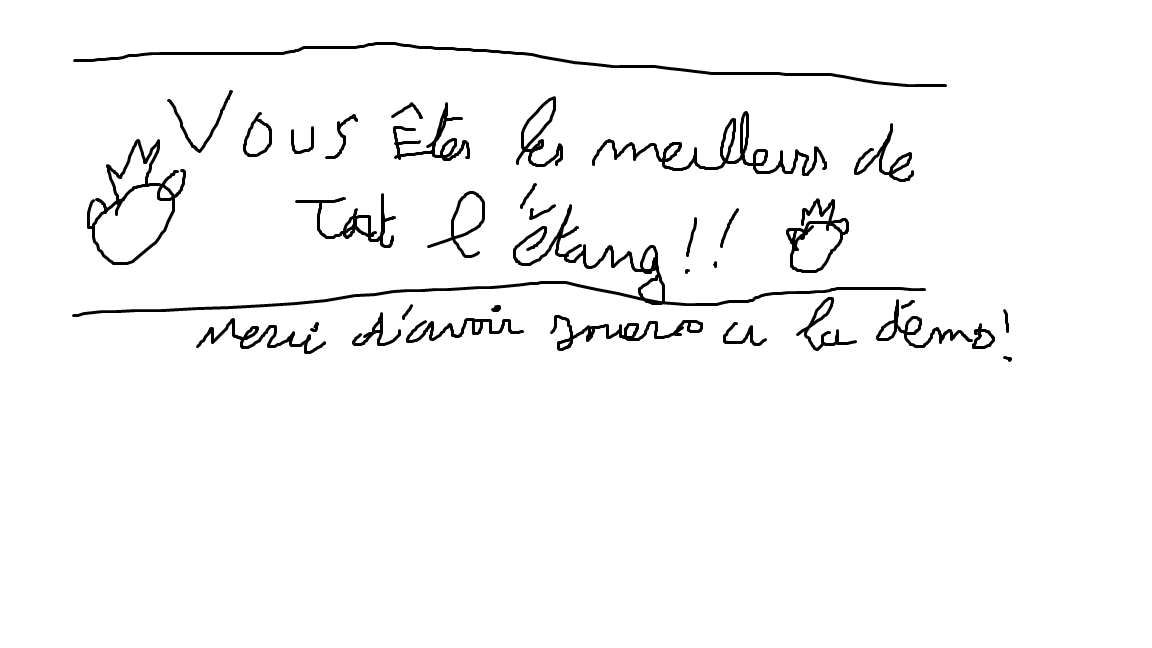 Vous Êtes les meilleurs de
Tout l'étang!!
Merci d'avoir jouer a la démo!